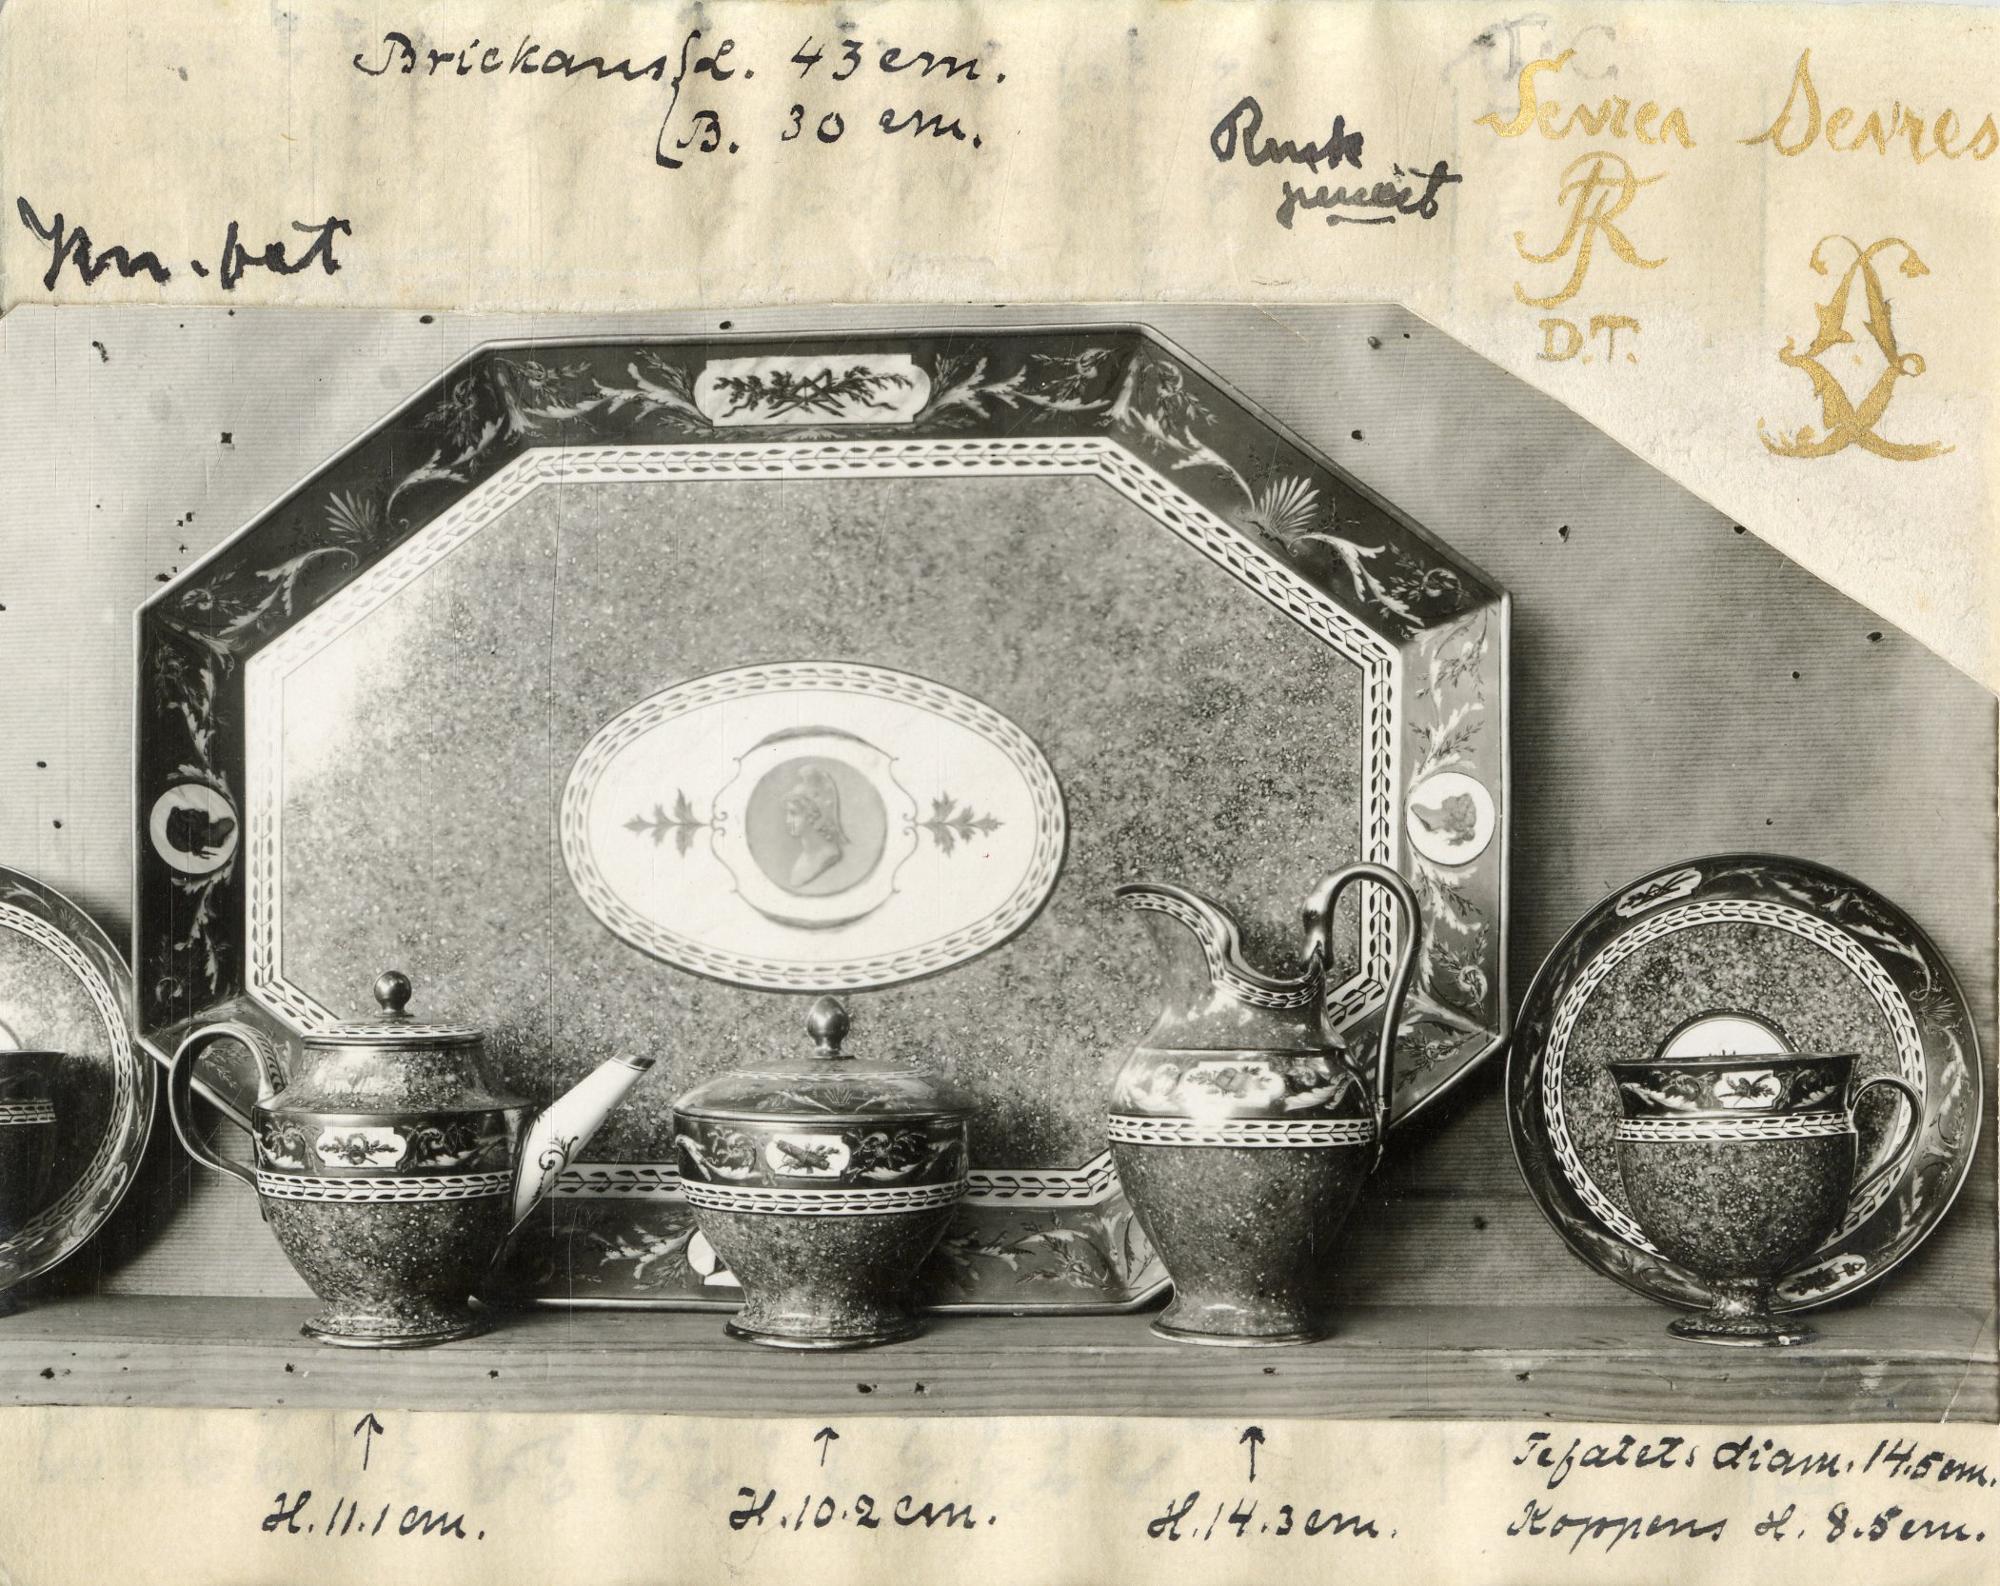 Brickans L. 43 cm.
B. 30 cm.
Sevres
RF
D.T.
Sevres
H. 11.1 cm.
H. 10.2 cm.
H. 14.3 cm.
Tefatets diam. 14.5 cm.
Koppens H. 8.5 cm.